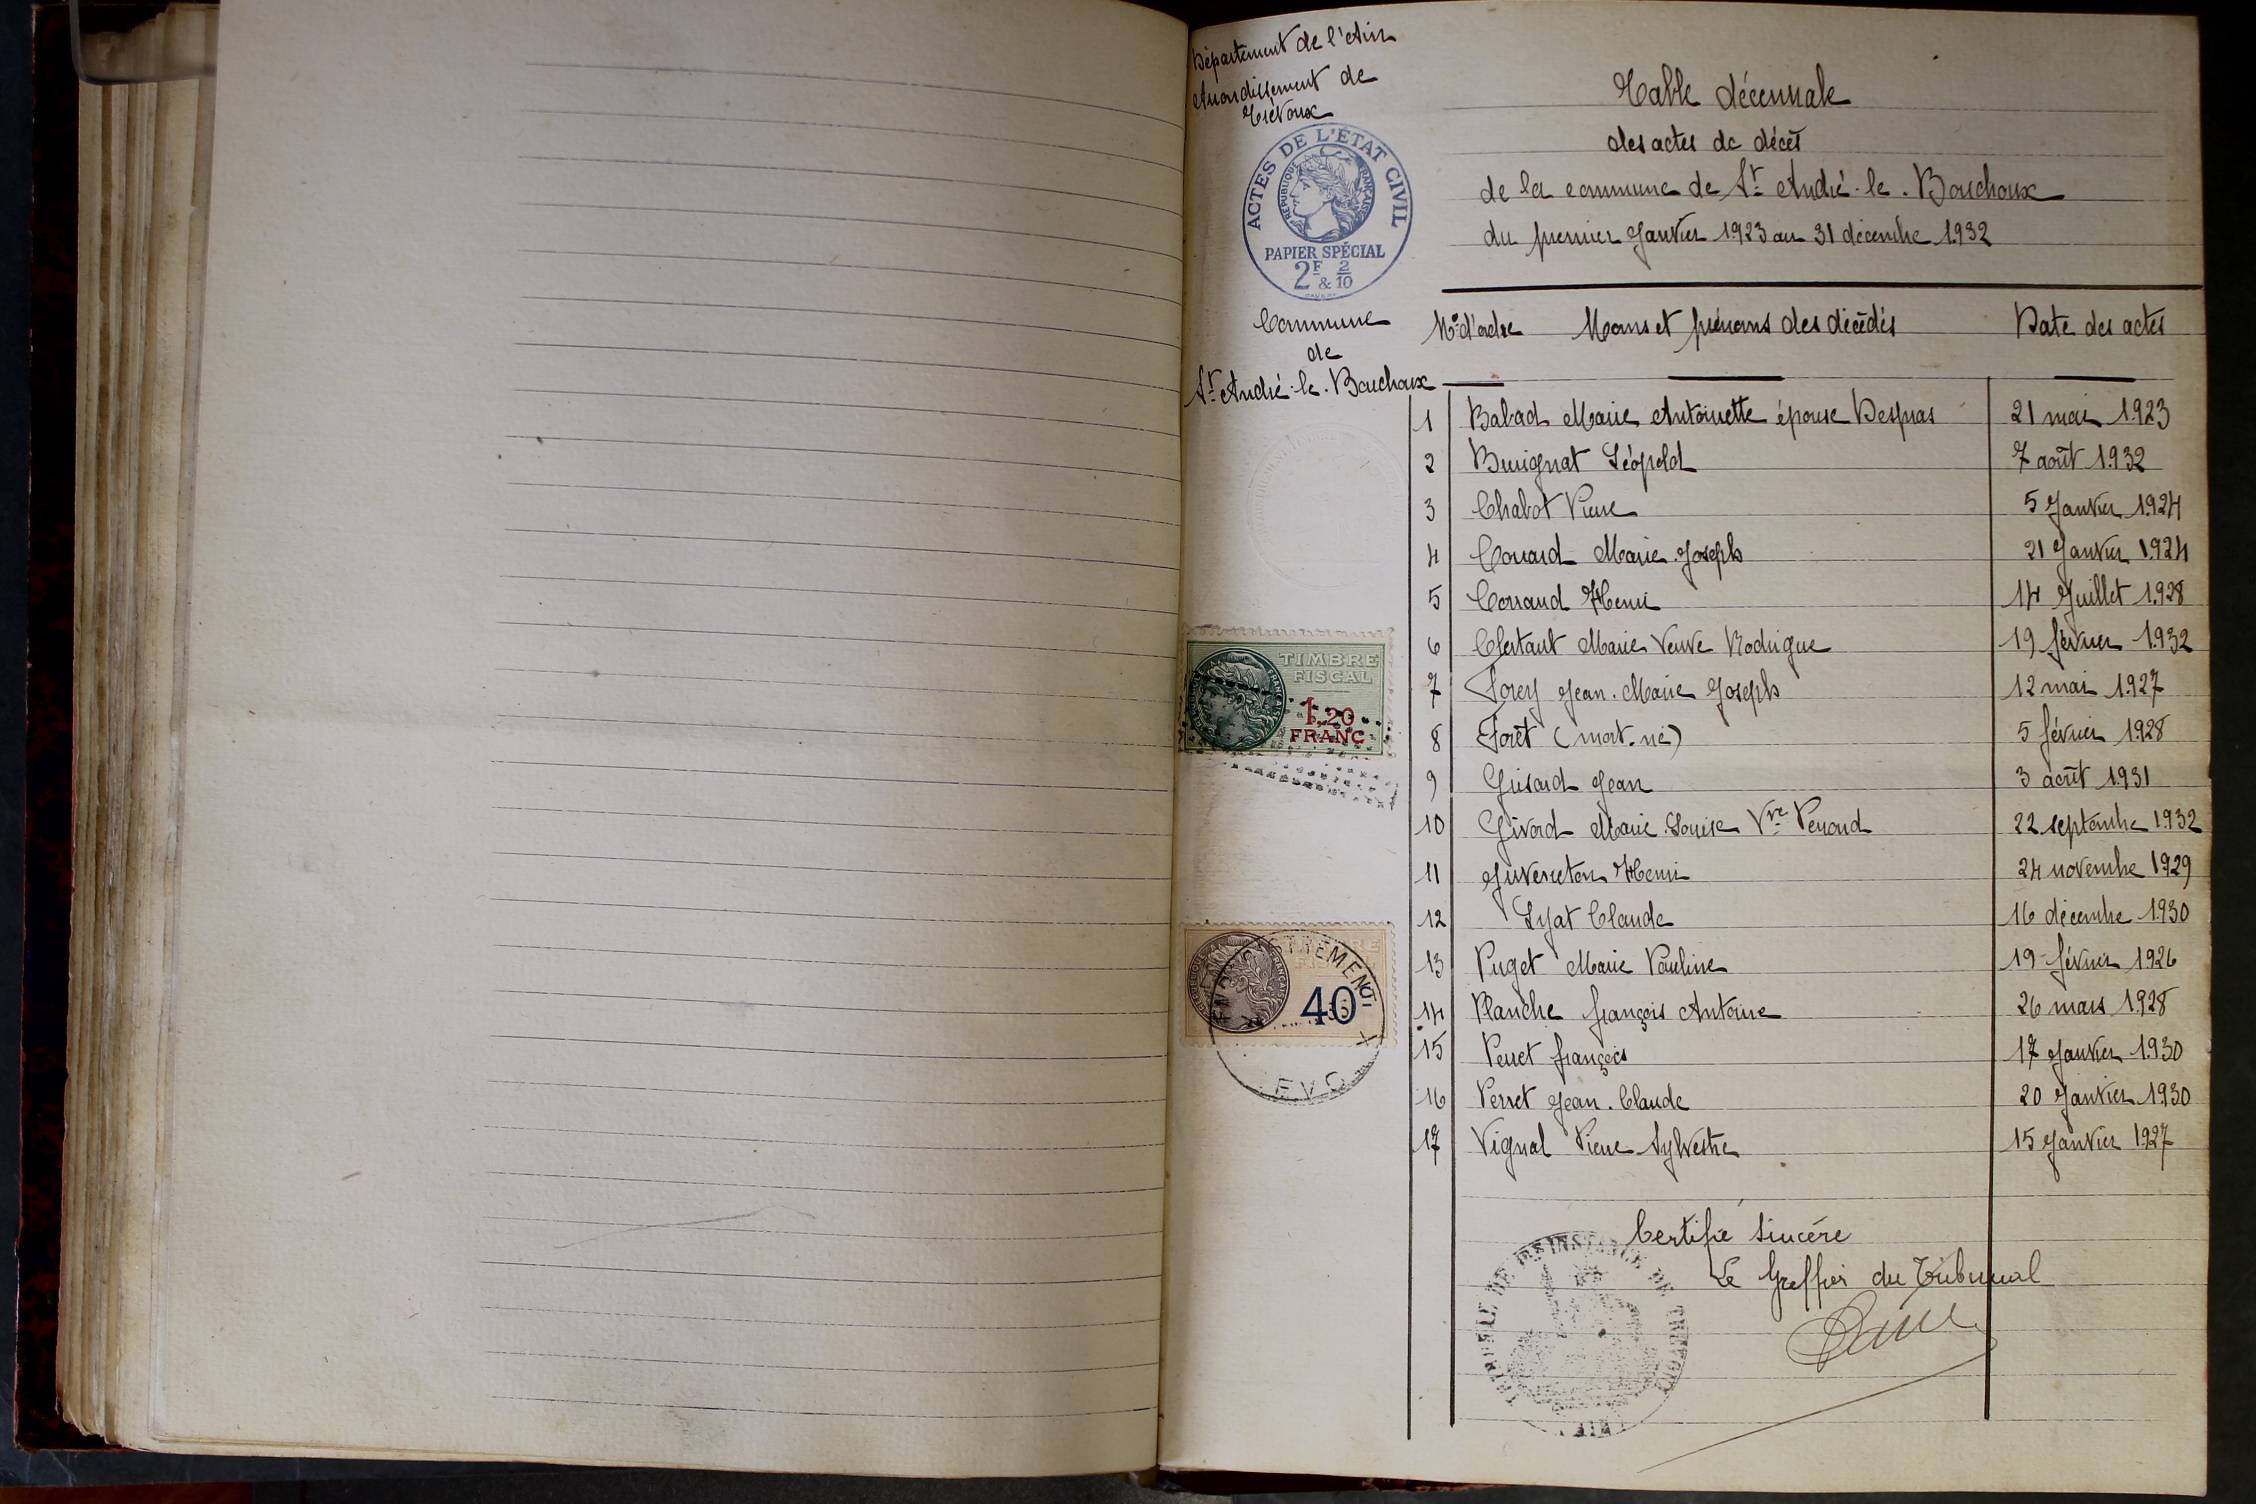 Département de l'Ain
Arrondissement de
Trévoux
ACTES DE L'ÉTAT CIVIL
RÉPUBLIQUE FRANÇAISE
PAPIER SPÉCIAL
2F & 2/10
Commune
de
St André-le-Bouchoux
TIMBRE
FISCAL
1,20
FRANC
40
Table décennale
des actes de décès
de la commune de St André-le-Bouchoux
du premier Janvier 1923 au 31 décembre 1932
No d'ordre Noms et prénoms des décédés Date des actes
1 Babad Marie Antoinette épouse Despras 21 mai 1923
2 Buvignat Léopold 7 août 1932
3 Chabot Pierre 5 Janvier 1924
4 Couard Marie-Joseph 21 Janvier 1924
5 Corraud Henri 14 Juillet 1928
6 Clertant Marie Veuve Rodrigue 19 février 1932
7 Forey Jean-Marie Joseph 12 mai 1927
8 Forêt (mort-né) 5 février 1928
9 Grisard Jean 3 août 1931
10 Givord Marie-Louise Vve Penoud 22 septembre 1932
11 Juveneton Henri 24 novembre 1929
12 Lyat Claude 16 décembre 1930
13 Puget Marie Pauline 19 février 1926
14 Planche françois Antoine 26 mars 1928
15 Perret françois 17 Janvier 1930
16 Perret Jean-Claude 20 Janvier 1930
17 Vignal Pierre Sylvestre 15 Janvier 1927
Certifié sincère
Le Greffier du Tribunal